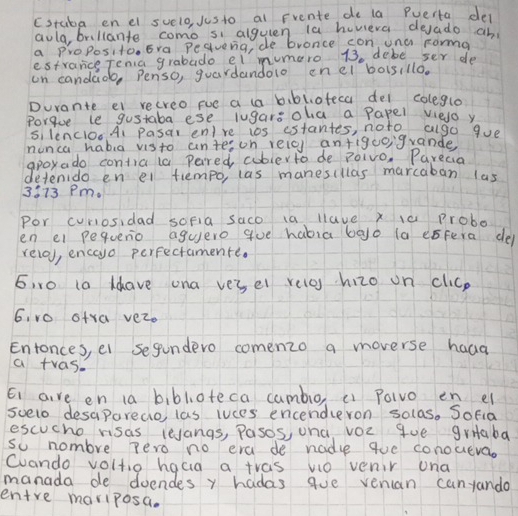 Estaba en el suelo, Justo al Frente de la Puerta del
aula, brillante como si alguien la huviera dejado ahi
a Proposito. Era Pequeña, de bronce con una Forma
estraña, Tenia grabado el numero 13. debe ser de
un candado, Penso, guardandolo en el bolsillo.
Durante el recreo Fue a la biblioteca del colegio
Porque le gustaba ese lugar: olia a Papel viejo y
silencio. Al Pasar entre los estantes, noto algo que
nunca habia visto ante: un reloj antiguo, grande,
apoyado contra la Pared, cubierto de Polvo. Parecia
detenido en el tiempo, las manesillas marcaban las
3:13 Pm.
Por curiosidad sofia saco la llave y la Probo
en el Pequeño agujero que habia bajo la esfera del
reloj, encajo perfectamente.
Giro la llave una vez, el reloj hizo un clic,
Giro otra vez.
Entonces, el segundero comenzo a moverse hacia
a tras.
El aire en la biblioteca cambio, el Polvo en el
suelo desaparecio, las luces encendieron solas. Sofia
escucho risas lejanas, Pasos, una voz que gritaba
su nombre Pero no era de nadie que conociera.
Cuando voltio hacia a tras vio venir una
manada de duendes y hadas que venian cantando
entre mariposa.